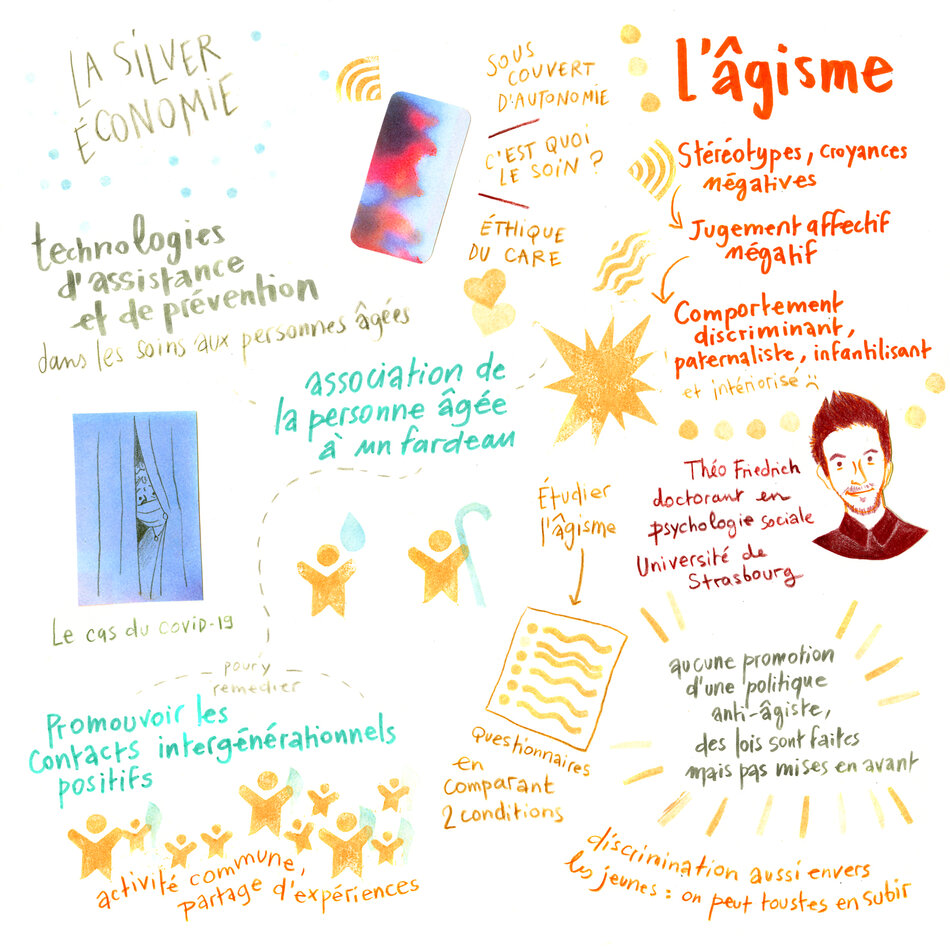 LA SILVER
ÉCONOMIE
technologies
d'assistance
et de prévention
dans les soins aux personnes âgées
SOUS
COUVERT
D'AUTONOMIE
C'EST QUOI
LE SOIN ?
ÉTHIQUE
DU CARE
l'âgisme
Stéréotypes, croyances
négatives
Jugement affectif
négatif
Comportement
discriminant,
paternaliste, infantilisant
et intériorisé :(
association de
la personne âgée
à un fardeau
Théo Friedrich
doctorant en
psychologie sociale
Université de
Strasbourg
Étudier
l'âgisme
Questionnaires
en
comparant
2 conditions
Le cas du covid-19
pour y
remedier
Promouvoir les
contacts intergénérationnels
positifs
activité commune,
partage d'expériences
aucune promotion
d'une politique
anti-âgiste,
des lois sont faites
mais pas mises en avant
discrimination aussi envers
les jeunes : on peut toustes en subir